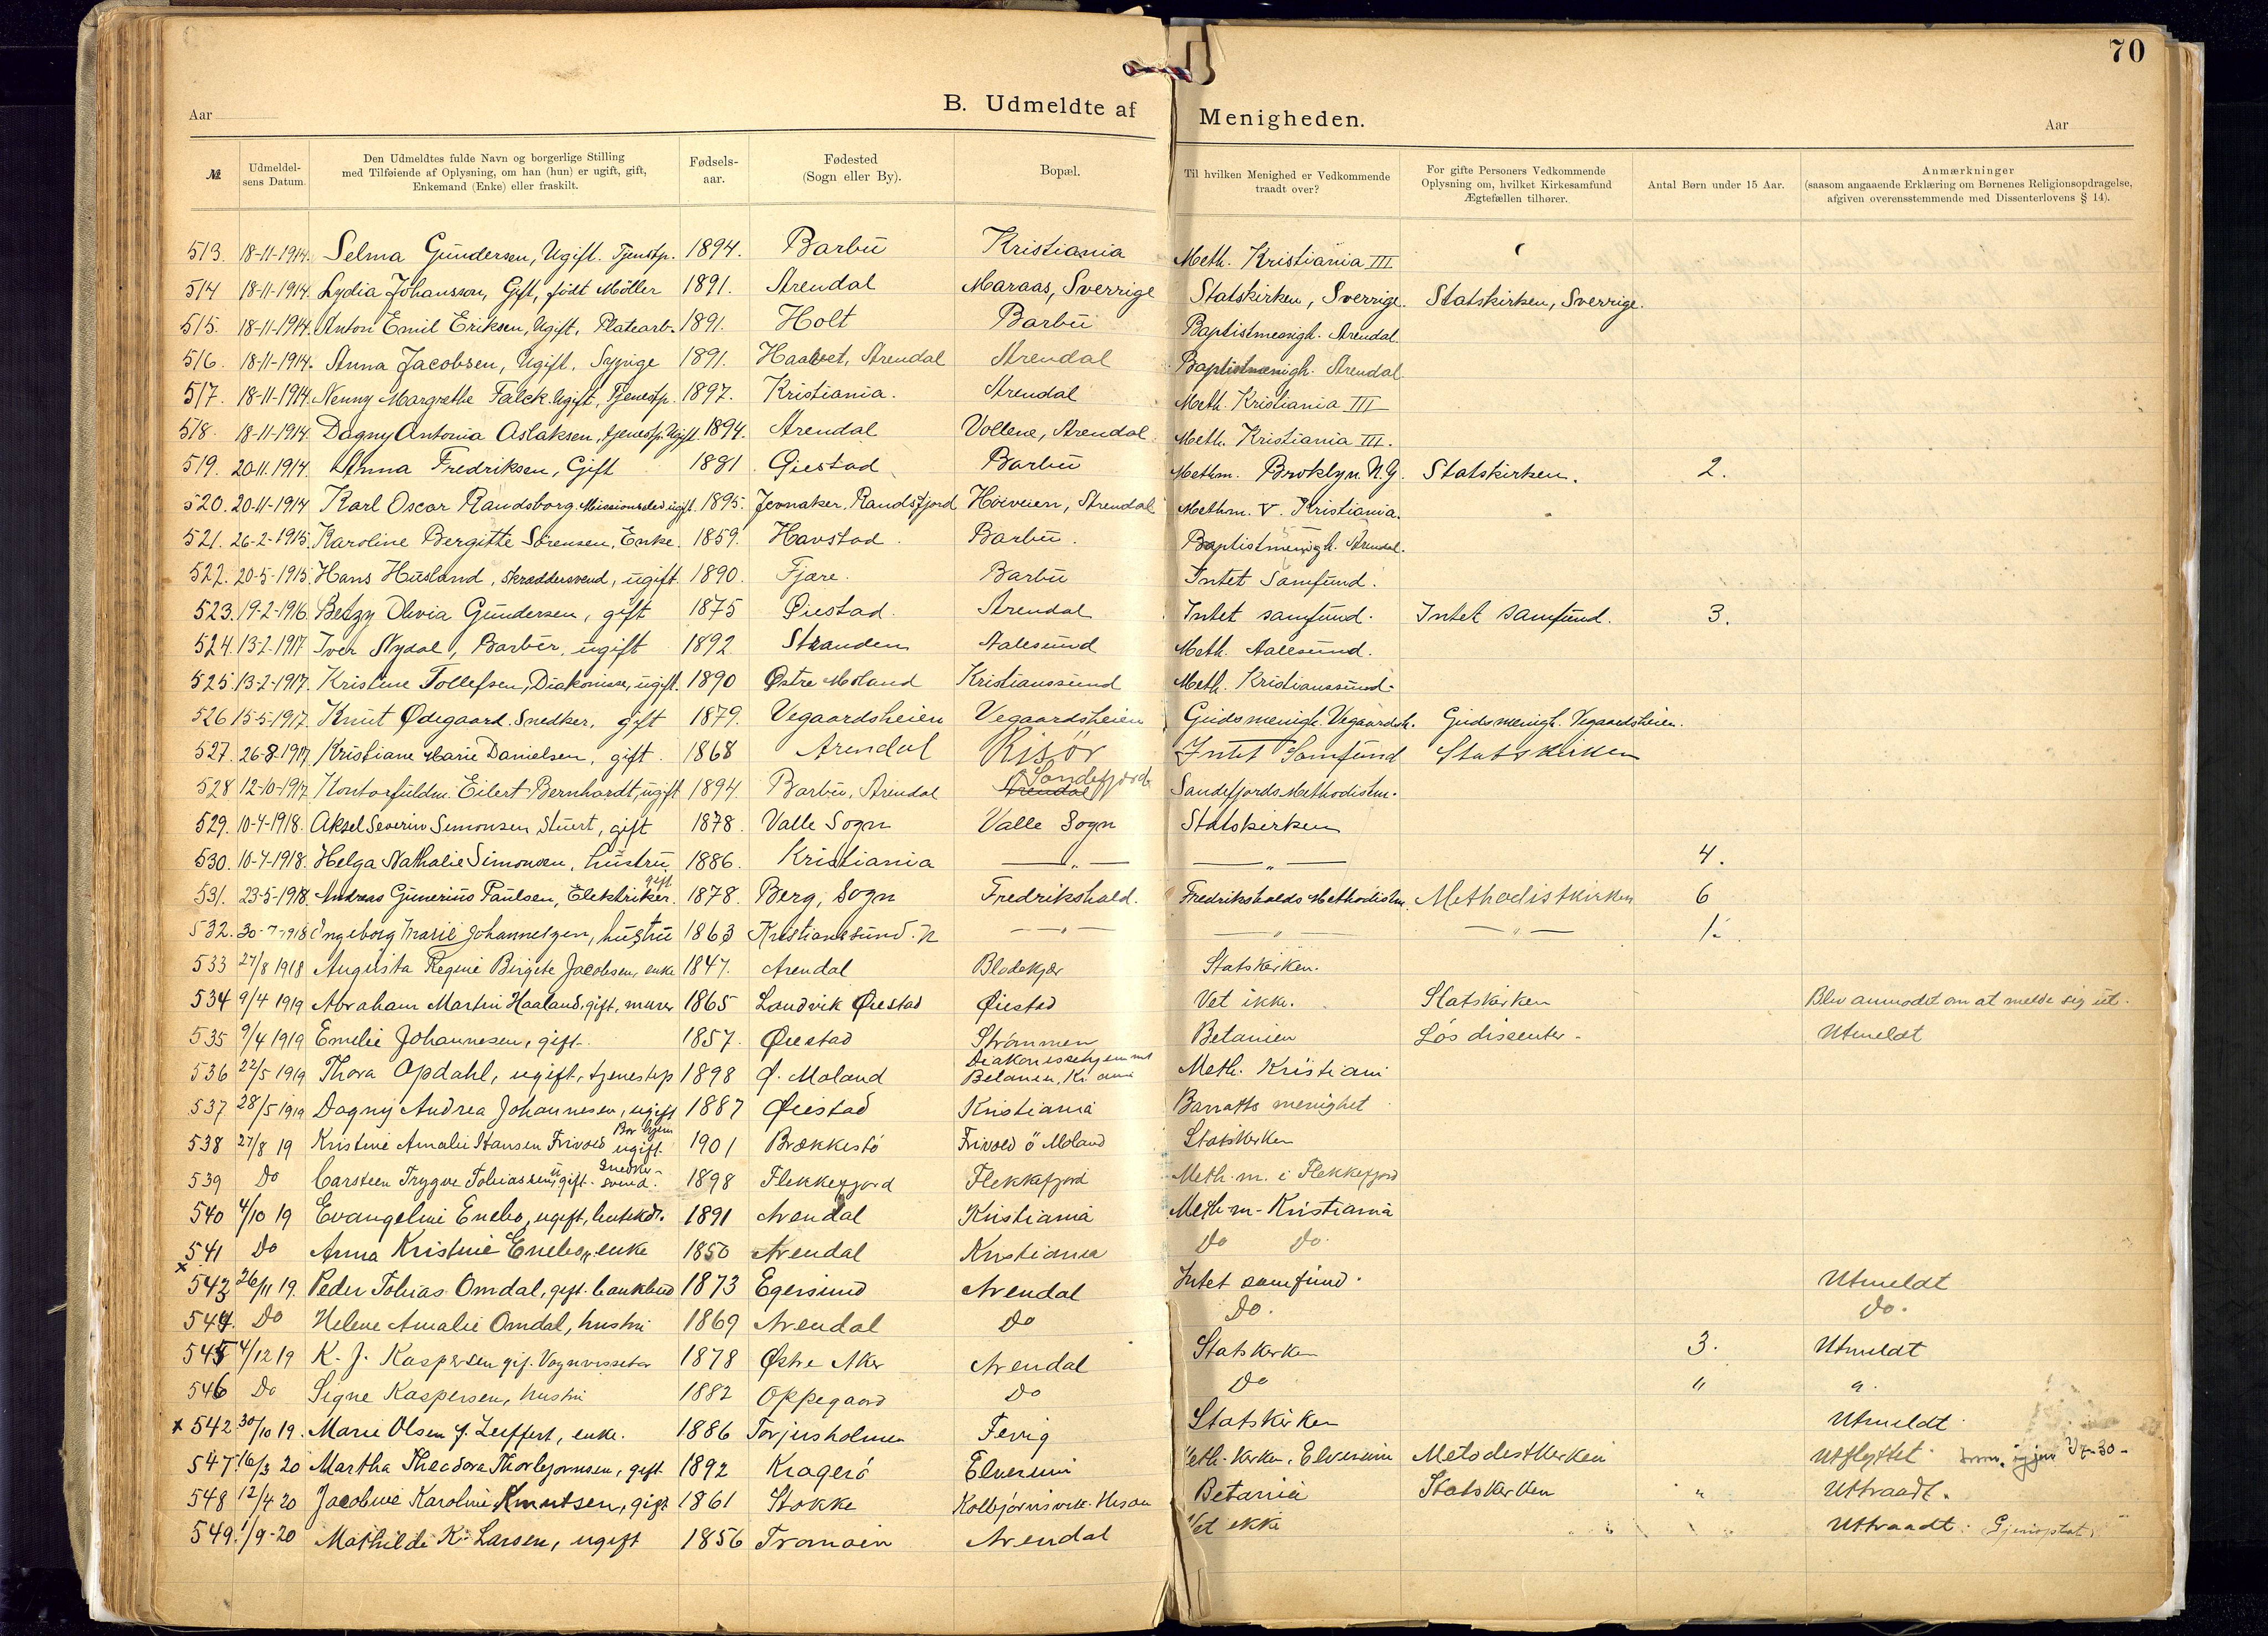 70
B. Udmeldte af Menigheden.
Aar
Aar
№
Udmeldelsens Datum.
Den Udmeldtes fulde Navn og borgerlige Stilling
med Tilføiende af Oplysning, om han (hun) er ugift, gift,
Enkemand (Enke) eller fraskilt.
Fødselsaar.
Fødested
(Sogn eller By).
Bopæl.
Til hvilken Menighed er Vedkommende
traadt over?
For gifte Personers Vedkommende
Oplysning om, hvilket Kirkesamfund
Ægtefællen tilhører.
Antal Børn under 15 Aar.
Anmærkninger
(saasom angaaende Erklæring om Børnenes Religionsopdragelse,
afgiven overensstemmende med Dissenterlovens § 14).
513. 18-11-1914. Selma Gundersen, Ugift. Tjenstp. 1894. Barbu Kristiania Meth. Kristiania III
514 18-11-1914. Lydia Johansson, Gift, født Møller 1891. Arendal Maraas, Sverrige Statskirken, Sverrige. Statskirken, Sverrige.
515. 18-11-1914. Anton Emil Eriksen, Ugift, Platearb. 1891. Holt Barbu Baptistmenigh. Arendal
516. 18-11-1914. Anna Jacobsen, Ugift, Sypige 1891. Haabet, Arendal Arendal Baptistmenigh. Arendal.
517. 18-11-1914. Nenny Margrethe Falck. Ugift, Tjenestp. 1897. Kristiania. Arendal Meth. Kristiania III
518. 18-11-1914. Dagny Antonia Aslaksen, tjenestp. Ugift 1894. Arendal Vollene, Arendal. Meth. Kristiania III.
519. 20-11-1914. Anna Fredriksen, Gift 1881. Øiestad Barbu Methm. Broklyn. N.Y. Statskirken. 2.
520. 20-11-1914 Karl Oscar Randsborg. Missionselev ugift. 1895. Jevnaker, Randsfjord Høiveien, Arendal Methm. V. Kristiania.
521. 26-2-1915. Karoline Bergitte Sørensen, Enke. 1859. Havstad. Barbu. Baptistmenigh. Arendal.
522. 20-5-1915. Hans Husland, Skræddersvend, ugift. 1890. Fjære. Barbu Intet Samfund.
523. 19-2-1916. Betzy Olivia Gundersen, gift 1875 Øiestad. Arendal Intet samfund. Intet samfund. 3.
524. 13-2-1917 Iver Nydal, Barber, ugift 1892 Stranden Aalesund Meth. Aalesund.
525. 13-2-1917. Kristine Tollefsen, Diakonisse, ugift. 1890 Østre Moland Kristianssund Meth. Kristianssund.
526 15-5-1917. Knut Ødegaard. Snedker, gift 1879. Vegaardsheien Vegaardsheien Gudsmenigh. Vegaardsh. Gudsmenigh. Vegaardsheien.
527. 26-8-1917 Kristiane Marie Danielsen, gift. 1868 Arendal Risör Intet Samfund Statskirken
528 12-10-1917. Kontorfuldm. Eilert Bernhardt, ugift 1894. Barbu, Arendal Arendal Sandefjord Sandefjords Methodistm.
529. 10-4-1918. Aksel Severin Simonsen Stuert, gift 1878. Valle Sogn Valle Sogn Statskirken
530. 10-4-1918. Helga Nathalie Simonsen, hustru 1886. Kristiania — „ — — „ — 4.
531. 23-5-1918. Andreas Gunerius Paulsen, Elektriker. gift. 1878. Berg, Sogn Fredrikshald. Fredrikshalds Methodistm. Methodistkirken 6
532. 30-7-1918 Ingeborg Marie Johannesen, hustru 1863 Kristianssund. N — „ — — „ — — „ — 1.
533 27/8 1918 Augusta Regine Birgite Jacobsen, enke 1847. Arendal Blødekjær Statskirken.
534 9/4 1919 Abraham Martin Haaland, gift, murer 1865 Landvik Øiestad Øiestad Vet ikke. Statskirken Blev anmodet om at melde sig ut.
535 9/4 1919 Emelie Johannesen, gift. 1857. Øiestad Strømmen Betanien Løs dissenter. Utmeldt
536 22/5 1919 Thora Opdahl, ugift, tjenestep 1898 Ø. Moland Diakonissehjemmet Betanien, Kr.ania Meth. Kristiani
537 28/5 1919 Dagny Andrea Johannesen, ugift 1887 Øiestad Kristiania Barratts menighet
538 27/8 19 Kristine Amalie Hansen Frivold ugift. Bor hjem 1901 Brækkestö Frivold ö Moland Statskirken
539 Do Carsteen Trygve Tobiassen, ugift. Snedker-svend. 1898 Flekkefjord Flekkefjord Meth.m. i Flekkefjord
540 4/10 19 Evangeline Enebo, ugift, butikdr. 1891 Arendal Kristiania Meth-m-Kristiania
541 Do Anna Kristine Enebo, enke 1850 Arendal Kristiania Do Do.
x 543 26/11 19. Peder Tobias Omdal, gift. bankbud 1873 Egersund Arendal Intet samfund. Utmeldt
544. Do Helene Amalie Omdal, hustru 1869 Arendal Do Do. Do.
545 4/12 19 K. J. Kaspersen gif. Vognvisseter 1878 Østre Aker Arendal Statskirken 3. Utmeldt
546 Do Signe Kaspersen, hustru 1882 Oppegaard Do Do " "
x 542 30/10 19. Marie Olsen f. Zeiffert, enke. 1886 Torjusholmen Fevig Statskirken Utmeldt.
547. 16/3 20 Martha Theodora Thorbjørnsen, gift 1892 Kragerö Elverum Meth. kirken, Elverum Metodistkirken Utflyttet
548 12/4 20 Jacobine Karoline Knutsen, gift 1861 Stokke Kolbjørnsvik. Hisøen Betania Statskirken " Uttraadt.
549. 1/9-20 Mathilde K. Larsen, ugift 1856 Tromöen Arendal Vet ikke Uttraadt: